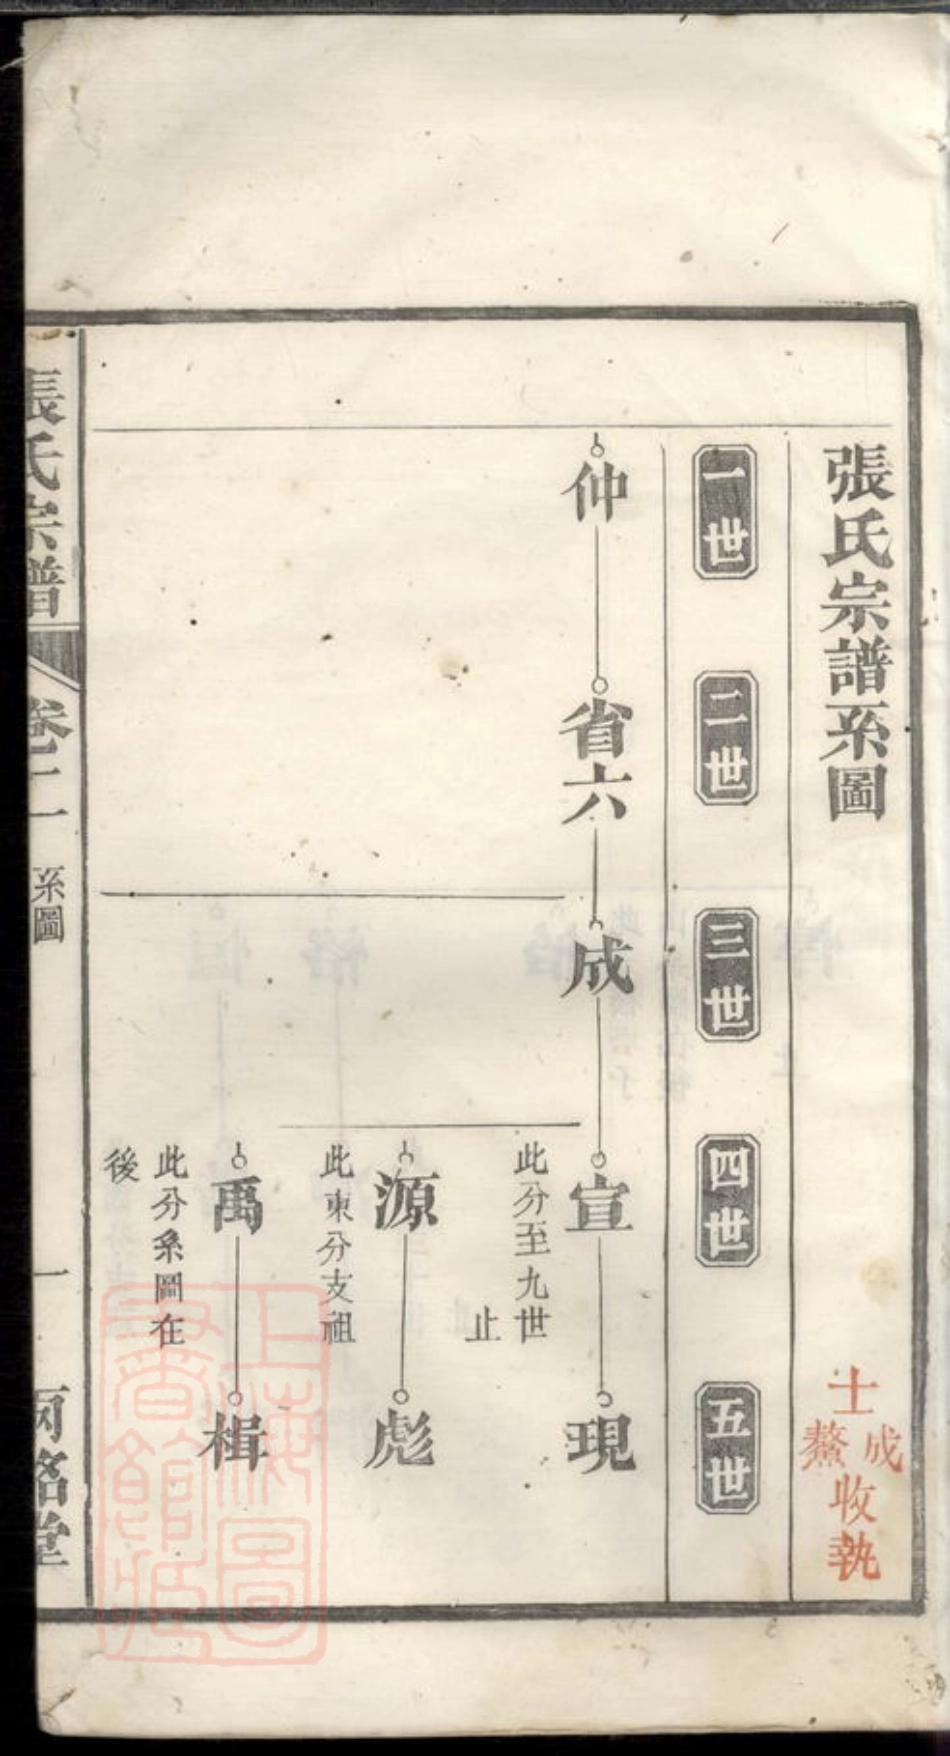 張氏宗譜系圖
士
成
鰲
收執
一世
二世
三世
四世
五世
仲
省六
成
宣
現
此分至九世
止
源
彪
此東分支祖
禹
楫
此分系圖在
後
張氏宗譜
卷二
系圖
一
上海圖
書館藏